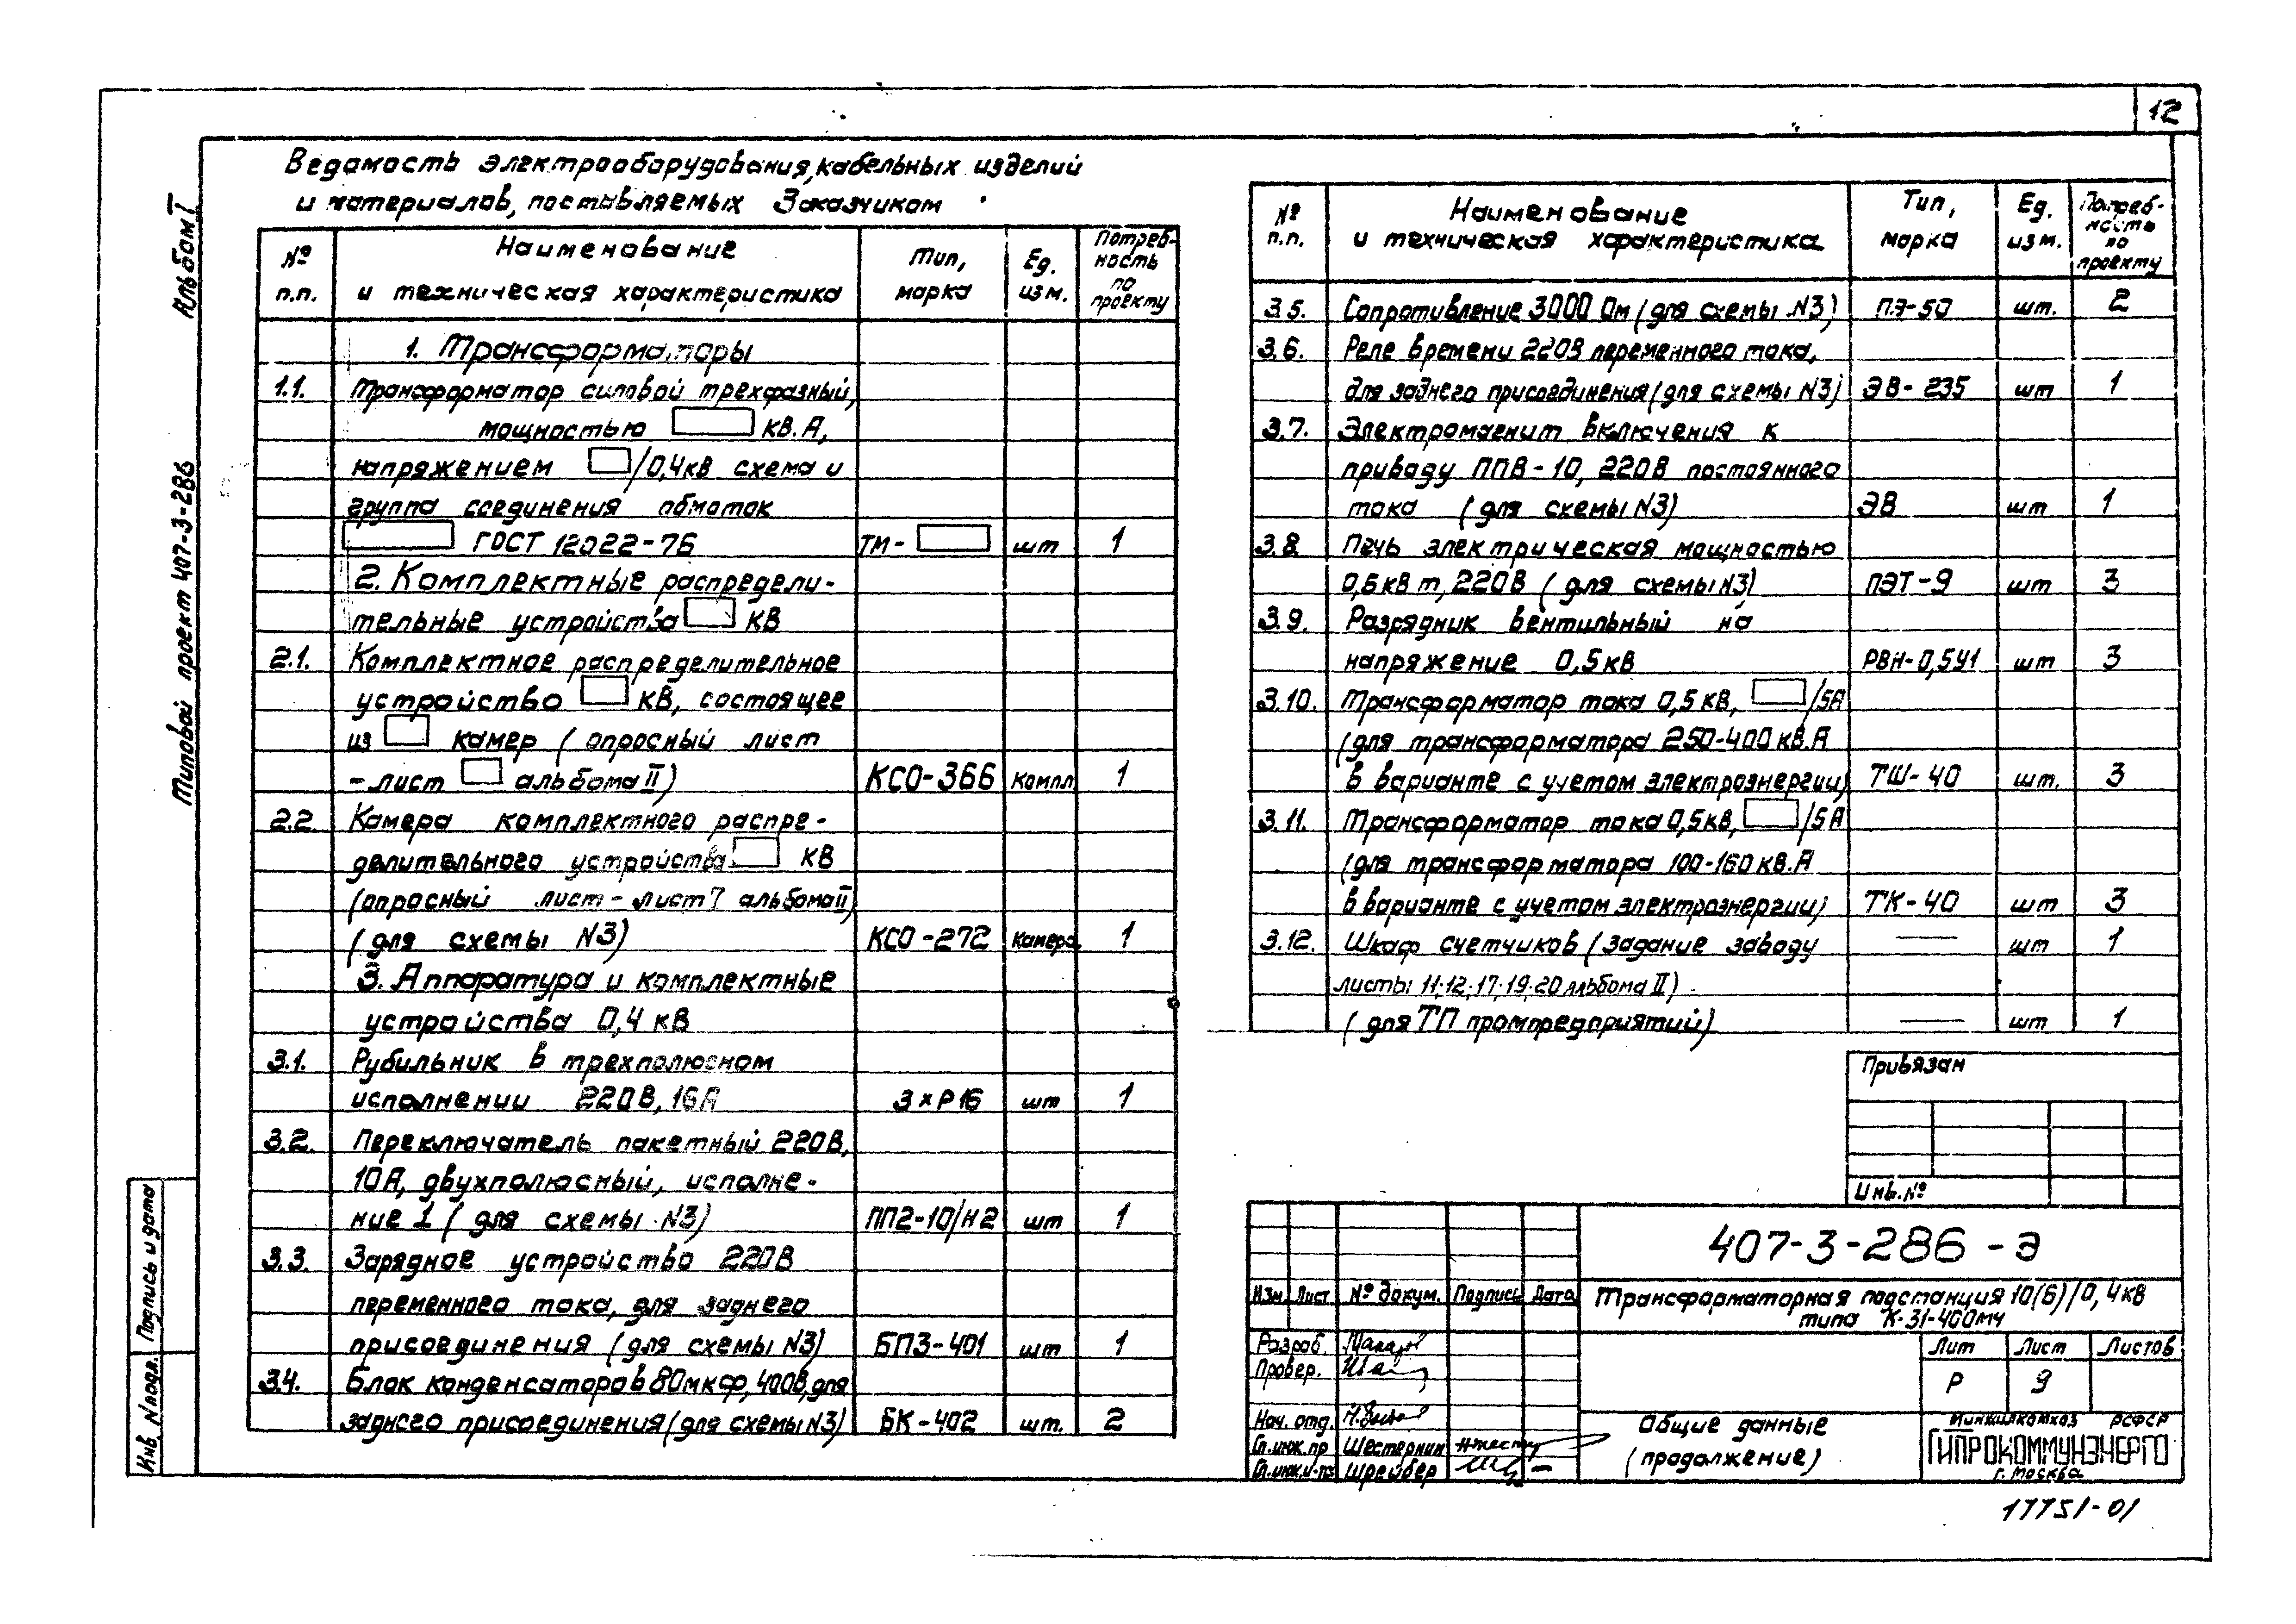 12
Альбом I
Типовой проект 407-3-286
Ведомость электрооборудования, кабельных изделий
и материалов, поставляемых Заказчиком
№ п.п. Наименование и техническая характеристика Тип, марка Ед. изм. Потреб-ность по проекту
1. Трансформаторы
1.1. Трансформатор силовой трехфазный,
мощностью кВ.А,
напряжением /0,4кв схема и
группа соединения обмоток
ГОСТ 12022-76 ТМ- шт 1
2. Комплектные распредели-
тельные устройства кВ
2.1. Комплектное распределительное
устройство кВ, состоящее
из камер (опросный лист
- лист альбома II) КСО-366 Компл 1
2.2. Камера комплектного распре-
делительного устройства кВ
(опросный лист - лист 7 альбома II)
(для схемы N3) КСО-272 Камера 1
3. Аппаратура и комплектные
устройства 0,4 кВ
3.1. Рубильник в трехполюсном
исполнении 220В, 16А 3×Р16 шт 1
3.2. Переключатель пакетный 220В,
10А, двухполюсный, исполне-
ние 1 (для схемы N3) ПП2-10/Н2 шт 1
3.3. Зарядное устройство 220В
переменного тока, для заднего
присоединения (для схемы N3) БПЗ-401 шт 1
3.4. Блок конденсаторов 80мкф, 400В, для
заднего присоединения (для схемы N3) БК-402 шт. 2
№ п.п. Наименование и техническая характеристика Тип, марка Ед. изм. Потреб-ность по проекту
3.5. Сопротивление 3000 Ом (для схемы N3) ПЭ-50 шт. 2
3.6. Реле времени 220В переменного тока,
для заднего присоединения (для схемы N3) ЭВ-235 шт 1
3.7. Электромагнит включения к
приводу ППВ-10, 220В постоянного
тока (для схемы N3) ЭВ шт 1
3.8 Печь электрическая мощностью
0,6кВт, 220В (для схемы N3) ПЭТ-9 шт 3
3.9. Разрядник вентильный на
напряжение 0,5кв РВН-0,5У1 шт 3
3.10. Трансформатор тока 0,5кВ, /5А
(для трансформатора 250-400кВ.А
в варианте с учетом электроэнергии) ТШ-40 шт. 3
3.11. Трансформатор тока 0,5кВ, /5А
(для трансформатора 100-160кВ.А
в варианте с учетом электроэнергии) ТК-40 шт 3
3.12. Шкаф счетчиков (задание заводу — шт 1
листы 11;12;17;19;20 альбома II)
(для ТП промпредприятий) — шт 1
Привязан
Инв.№
407-3-286-Э
Изм. Лист № докум. Подпись Дата
Трансформаторная подстанция 10(6)/0,4кв
типа К-31-400му
Разраб.
Провер.
Нач. отд.
Гл.инж.пр Шестернин
Гл.инж.и-та Шрейбер
Лит Лист Листов
Р 9
Общие данные
(продолжение)
Минжилкомхоз РСФСР
ГИПРОКОММУНЭНЕРГО
г. Москва
Подпись и дата
Инв. N подл.
17751-01